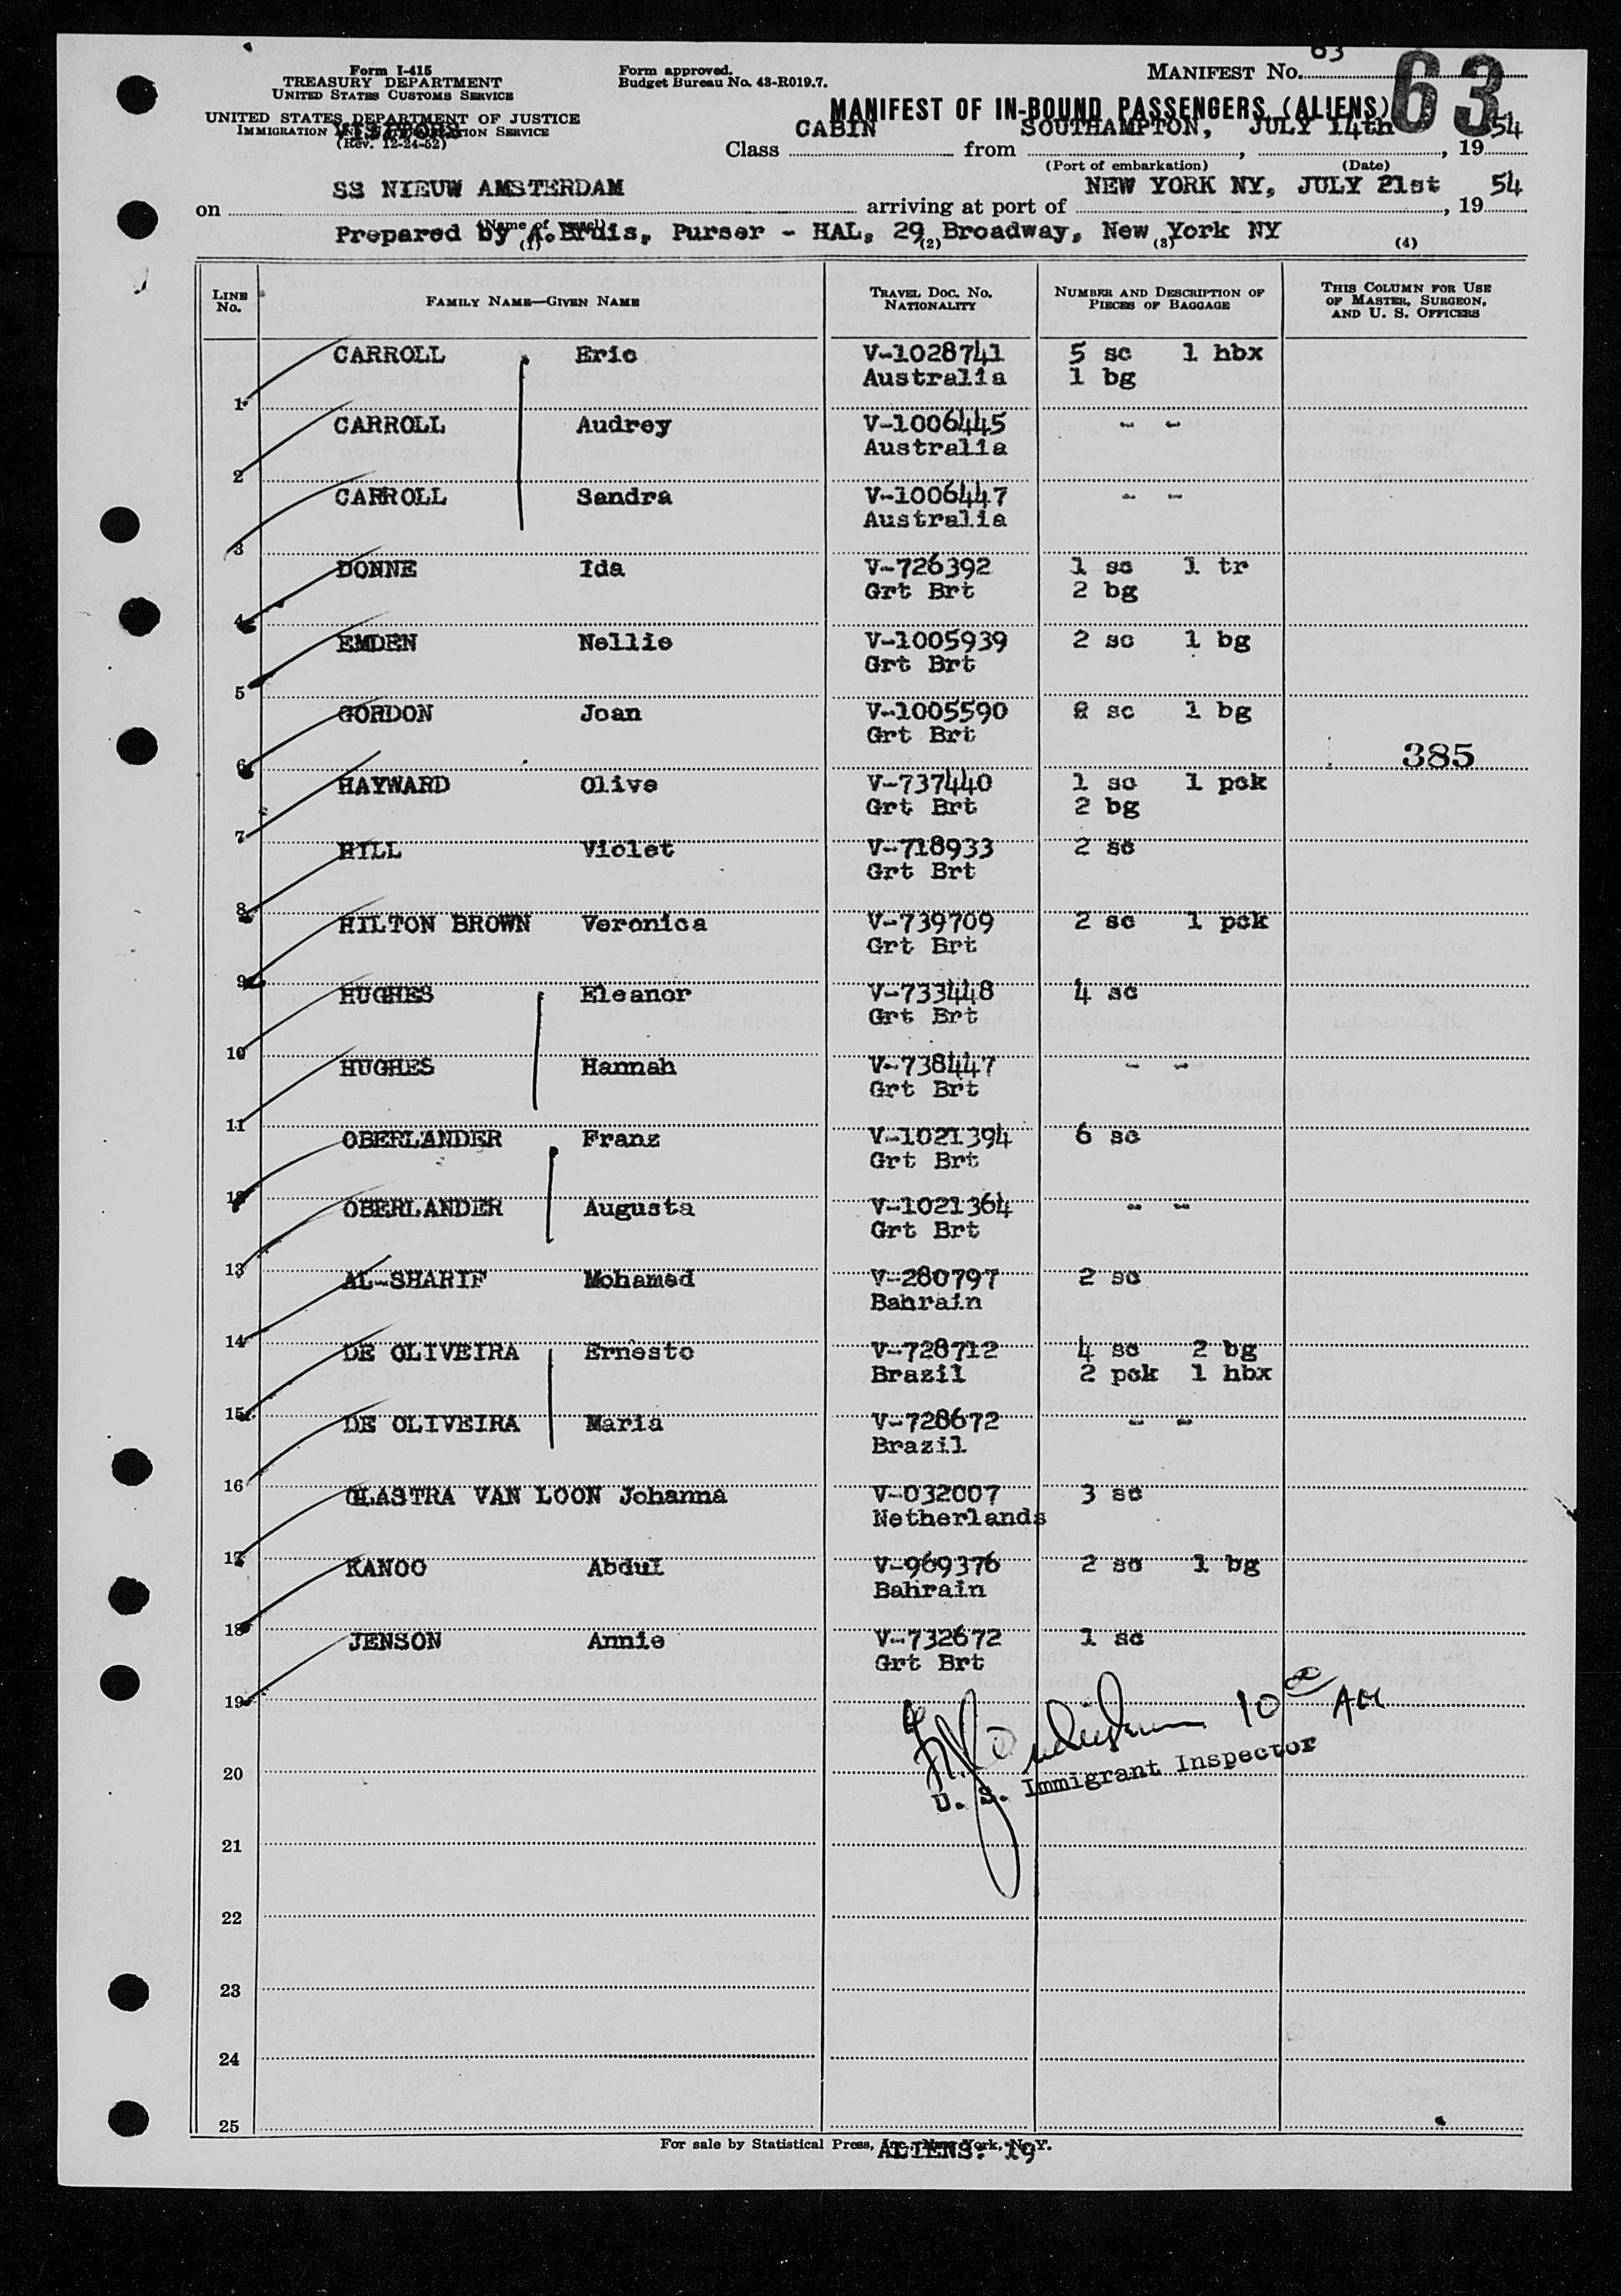 63
Form I-415
TREASURY DEPARTMENT
UNITED STATES CUSTOMS SERVICE
UNITED STATES DEPARTMENT OF JUSTICE
IMMIGRATION AND NATURALIZATION SERVICE
VISITORS
(Rev. 12-24-52)
Form approved.
Budget Bureau No. 43-R019.7.
MANIFEST No. 63
MANIFEST OF IN-BOUND PASSENGERS (ALIENS)
Class CABIN from SOUTHAMPTON, JULY 14th, 19 54
(Port of embarkation) (Date)
on SS NIEUW AMSTERDAM arriving at port of NEW YORK NY, JULY 21st, 19 54
(Name of vessel)
Prepared by A. Bruis, Purser - HAL, 29 Broadway, New York NY
(1) (2) (3) (4)
LINE No. FAMILY NAME—GIVEN NAME TRAVEL DOC. No. NATIONALITY NUMBER AND DESCRIPTION OF PIECES OF BAGGAGE THIS COLUMN FOR USE OF MASTER, SURGEON, AND U. S. OFFICERS
CARROLL Eric V-1028741 5 sc 1 hbx
1 Australia 1 bg
CARROLL Audrey V-1006445 - -
2 Australia
CARROLL Sandra V-1006447 - -
3 Australia
DONNE Ida V-726392 1 sc 1 tr
4 Grt Brt 2 bg
EMDEN Nellie V-1005939 2 sc 1 bg
5 Grt Brt
GORDON Joan V-1005590 2 sc 1 bg
6 Grt Brt 385
HAYWARD Olive V-737440 1 sc 1 pck
7 Grt Brt 2 bg
HILL Violet V-718933 2 sc
8 Grt Brt
HILTON BROWN Veronica V-739709 2 sc 1 pck
9 Grt Brt
HUGHES Eleanor V-733448 4 sc
10 Grt Brt
HUGHES Hannah V-738447 - -
11 Grt Brt
OBERLANDER Franz V-1021394 6 sc
12 Grt Brt
OBERLANDER Augusta V-1021364 - -
13 Grt Brt
AL-SHARIF Mohamed V-280797 2 sc
14 Bahrain
DE OLIVEIRA Ernesto V-728712 4 sc 2 bg
15 Brazil 2 pck 1 hbx
DE OLIVEIRA Maria V-728672 - -
16 Brazil
GLASTRA VAN LOON Johanna V-032007 3 sc
17 Netherlands
KANOO Abdul V-969376 2 sc 1 bg
18 Bahrain
JENSON Annie V-732672 1 sc
19 Grt Brt
10 AM
U. S. Immigrant Inspector
20
21
22
23
24
25
For sale by Statistical Press, Inc., New York, N. Y.
ALIENS: 19